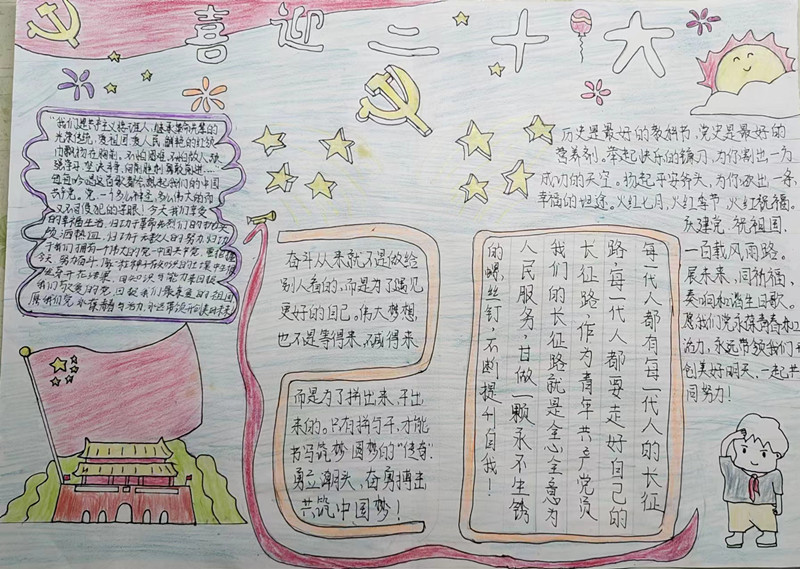 喜迎二十大
"我们是共产主义接班人，继承革命先辈的
光荣传统，爱祖国爱人民，鲜艳的红领
巾飘扬在胸前。不怕困难，不怕敌人，顽
强学习，坚决斗争，向着胜利勇敢前进……
党，一个多么神圣、多么伟大的而
又不可侵犯的字眼，今天我们享受
的幸福生活，归功于革命先烈们的抛头
颅洒热血，归功于无数人的努力，归功
于我们拥有一个伟大的党-中国共产党，
奋斗从来就不是做给
别人看的，而是为了遇见
更好的自己。伟大梦想
也不是等得来、喊得来
而是为了拼出来、干出
来的。只有拼与干，才能
书写筑梦圆梦的"传奇"
勇立潮头，奋勇搏击
共筑中国梦！
每一代人都有每一代人的长征
路，每一代人都要走好自己的
长征路。作为青年共产党员
我们的长征路就是全心全意为
人民服务，甘做一颗永不生锈
的螺丝钉，不断提升自我！
历史是最好的教科书，党史是最好的
营养剂。举起快乐的镰刀，为你割出一方
成功的天空。扬起平安斧头，为你砍出一条
幸福的坦途。火红七月，火红季节，火红祝福。
庆建党，祝祖国，
一百载风雨路。
展未来，同祈福，
奏响和谐生日歌。
愿我们党永葆青春和
活力，永远带领我们
创美好明天，一起共
同努力！